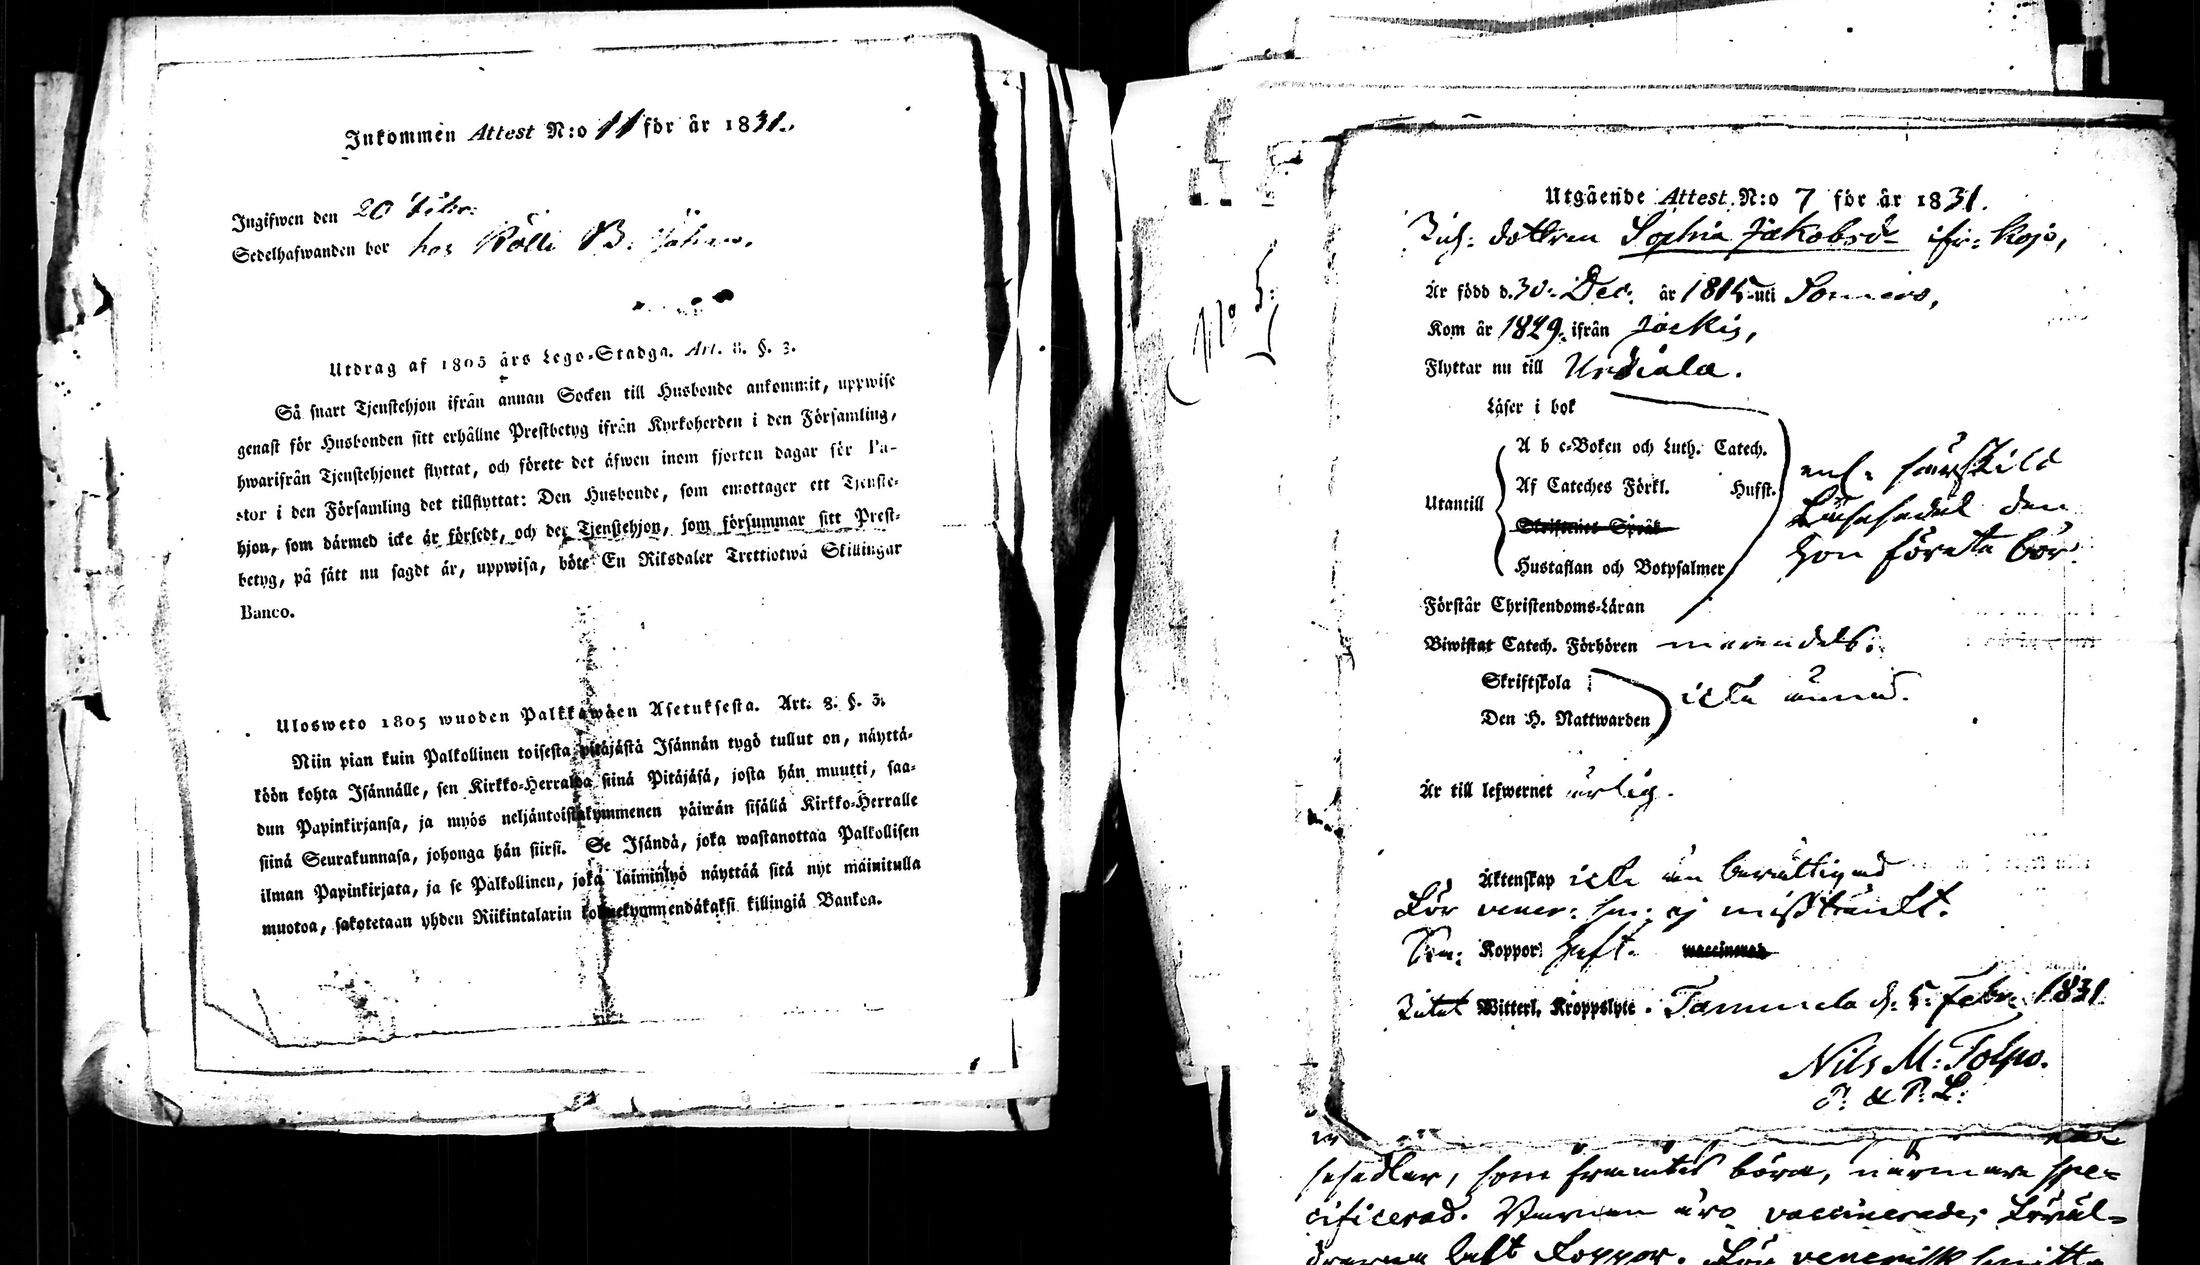 Inkommen Attest N:o 11 för år 1831.
Ingifwen den 20 Febr:
Sedelhafwanden bor hos Kölli B. Johan.
Utdrag af 1805 års Lego-Stadga. Art. 8. §. 3.
Så snart Tjenstehjon ifrån annan Socken till Husbonde ankommit, uppwise
genast för Husbonden sitt erhållne Prestbetyg ifrån Kyrkoherden i den Församling,
hwarifrån Tjenstehjonet flyttat, och förete det äfwen inom fjorten dagar för Pa-
stor i den Församling det tillflyttat: Den Husbonde, som emottager ett Tjenste-
hjon, som därmed icke är försedt, och det Tjenstehjon, som försummar sitt Prest-
betyg, på sätt nu sagdt är, uppwisa, böte En Riksdaler Trettiotwå Skillingar
Banco.
Ulosweto 1805 wuoden Palkkawäen Asetuksesta. Art. 8. §. 3.
Niin pian kuin Palkollinen toisesta pitäjästä Isännän tygö tullut on, näyttä-
köön kohta Isännälle, sen Kirkko-Herralda siinä Pitäjäsä, josta hän muutti, saa-
dun Papinkirjansa, ja myös neljäntoistakymmenen päiwän sisäliä Kirkko-Herralle
siinä Seurakunnasa, johonga hän siirsi. Se Isändä, joka wastanottaa Palkollisen
ilman Papinkirjata, ja se Palkollinen, joka laiminlyö näyttää sitä nyt mainitulla
muotoa, sakotetaan yhden Riikintalarin kolmekymmendäkaksi killingiä Bankoa.
N:o 5.
Utgående Attest N:o 7 för år 1831.
dottren Sophia Jakobsdr ifr: Kojo,
Är född d. 30. Dec. år 1815 uti Somero,
Kom år 1829. ifrån Jockis,
Flyttar nu till Urdiala.
Läser i bok
A b c-Boken och Luth. Catech.
Af Cateches Förkl. Husst.
Utantill
Skriftenes Språk
Hustaflan och Botpsalmer
enl: särskild
Läsesedel den
hon förete bör.
Förstår Christendoms-Läran
Biwistat Catech. Förhören merendels.
Skriftskola
Den H. Nattwarden
icke ännu.
Är till lefwernet ärlig.
Äktenskap icke än berättigad
För vener: sm: ej misstänkt.
Koppor haft. waccinerad
Witterl. Kroppslyte. Tammela d: 5. Febr. 1831.
Nils M: Tolpo.
P. & P. L:
sesedlar, som framtes böra, närmare spe-
cificerad. Barnen äro vaccinerade, Föräl-
drarne haft Koppor. För venerisk smitta